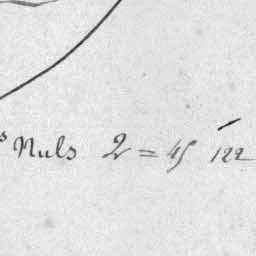 s Nuls 2 = 45 122